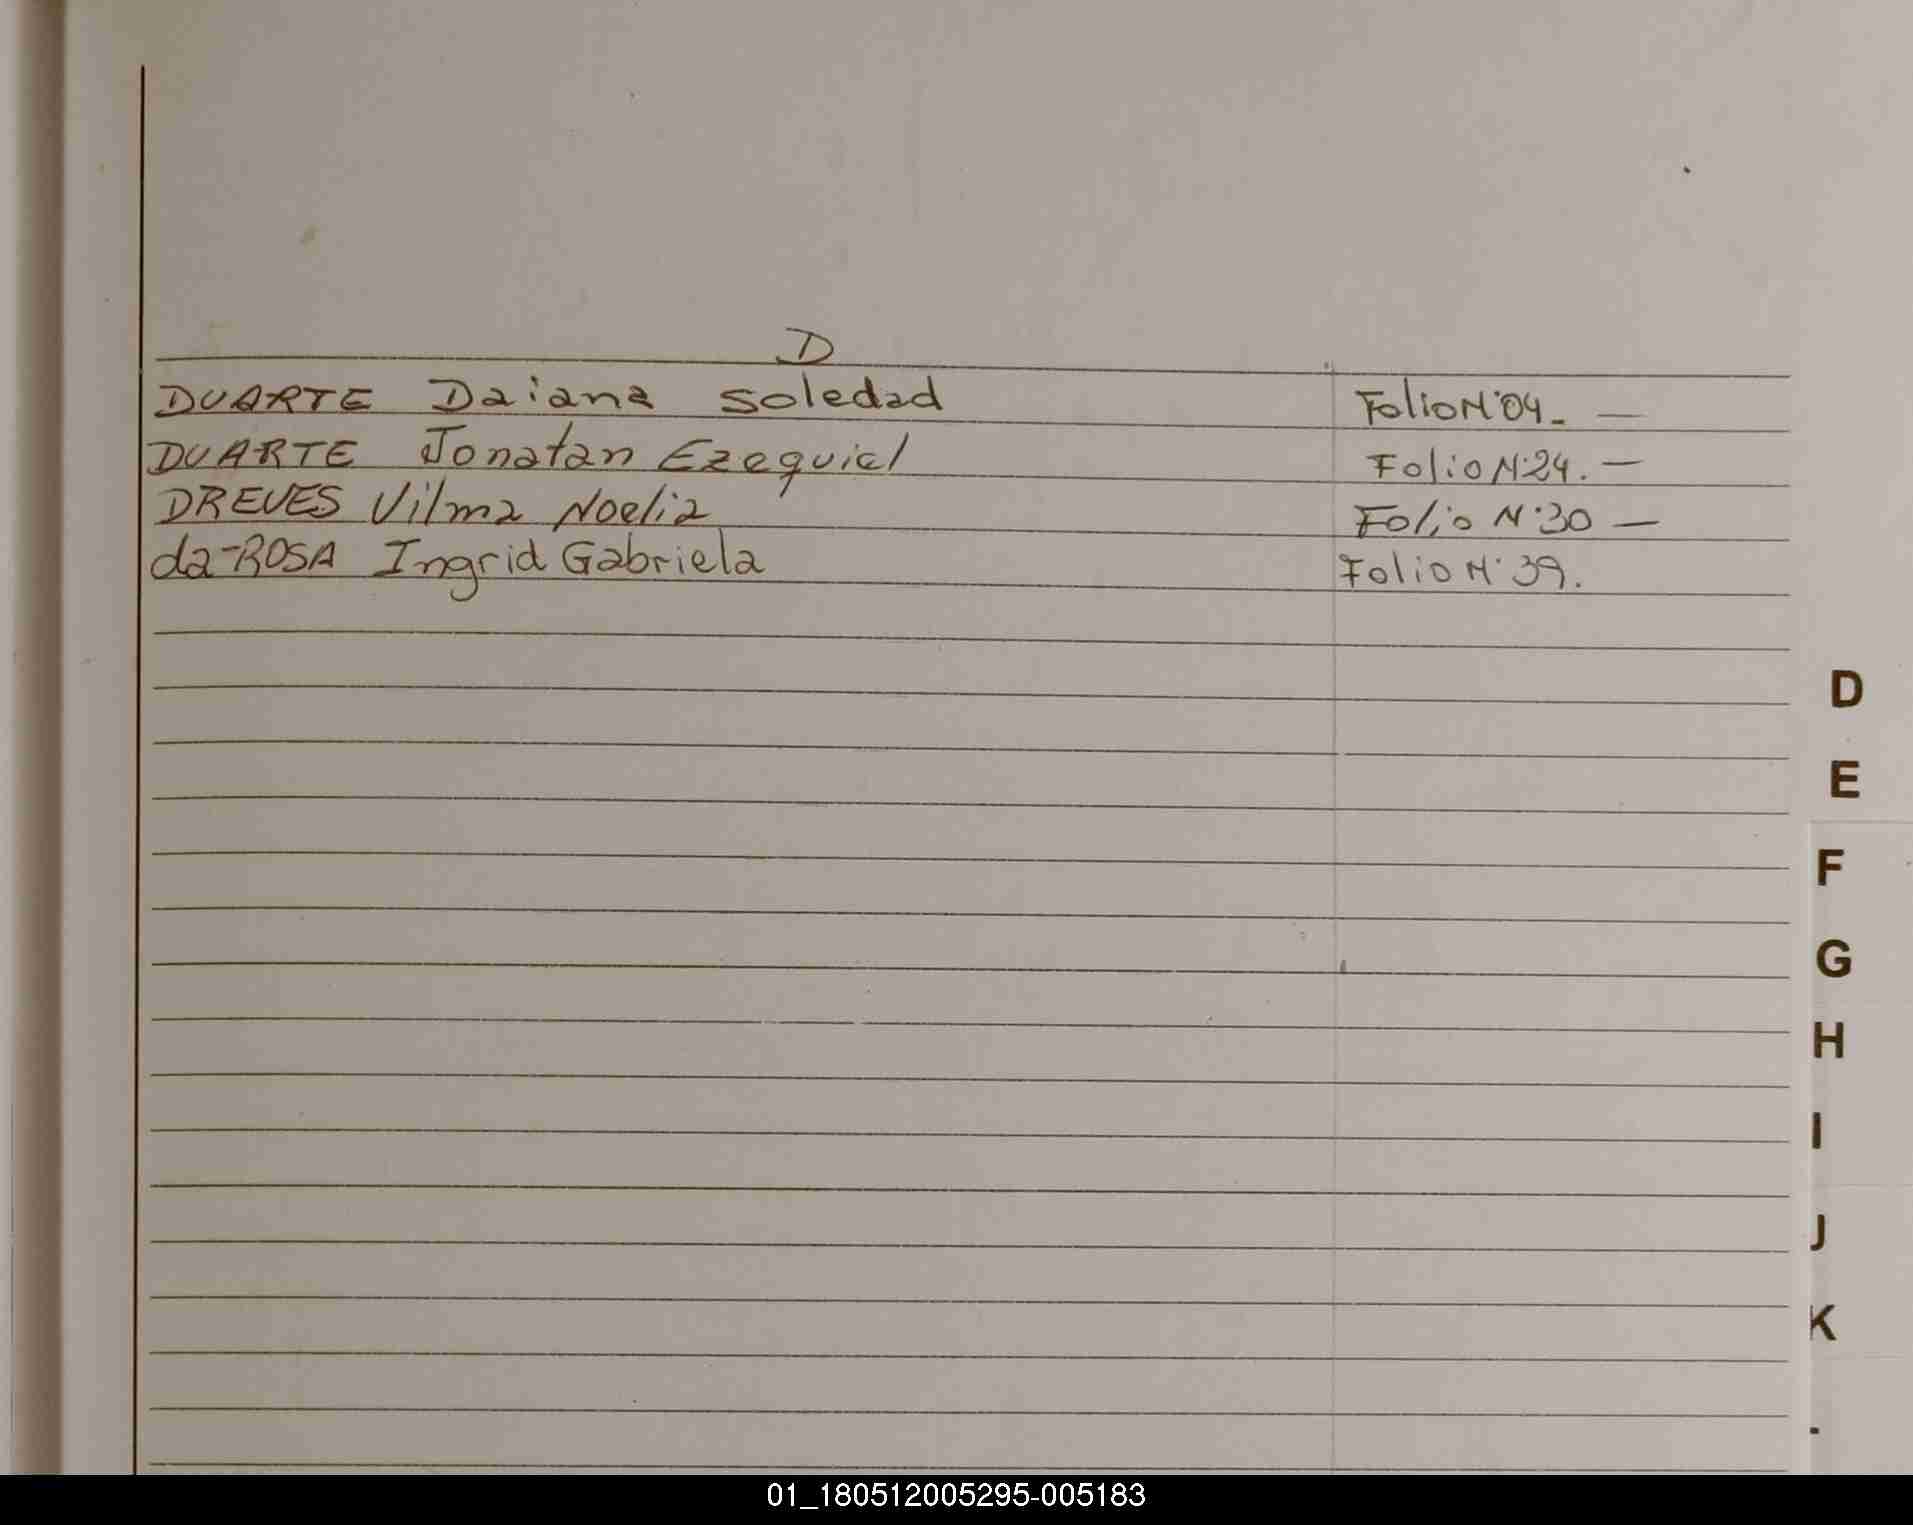 D
DUARTE Daiana Soledad Folio N°04. —
DUARTE Jonatan Ezequiel Folio N°24. —
DREVES Vilma Noelia Folio N°30 —
da-ROSA Ingrid Gabriela Folio N°39.
D
E
F
G
H
I
J
K
01_180512005295-005183